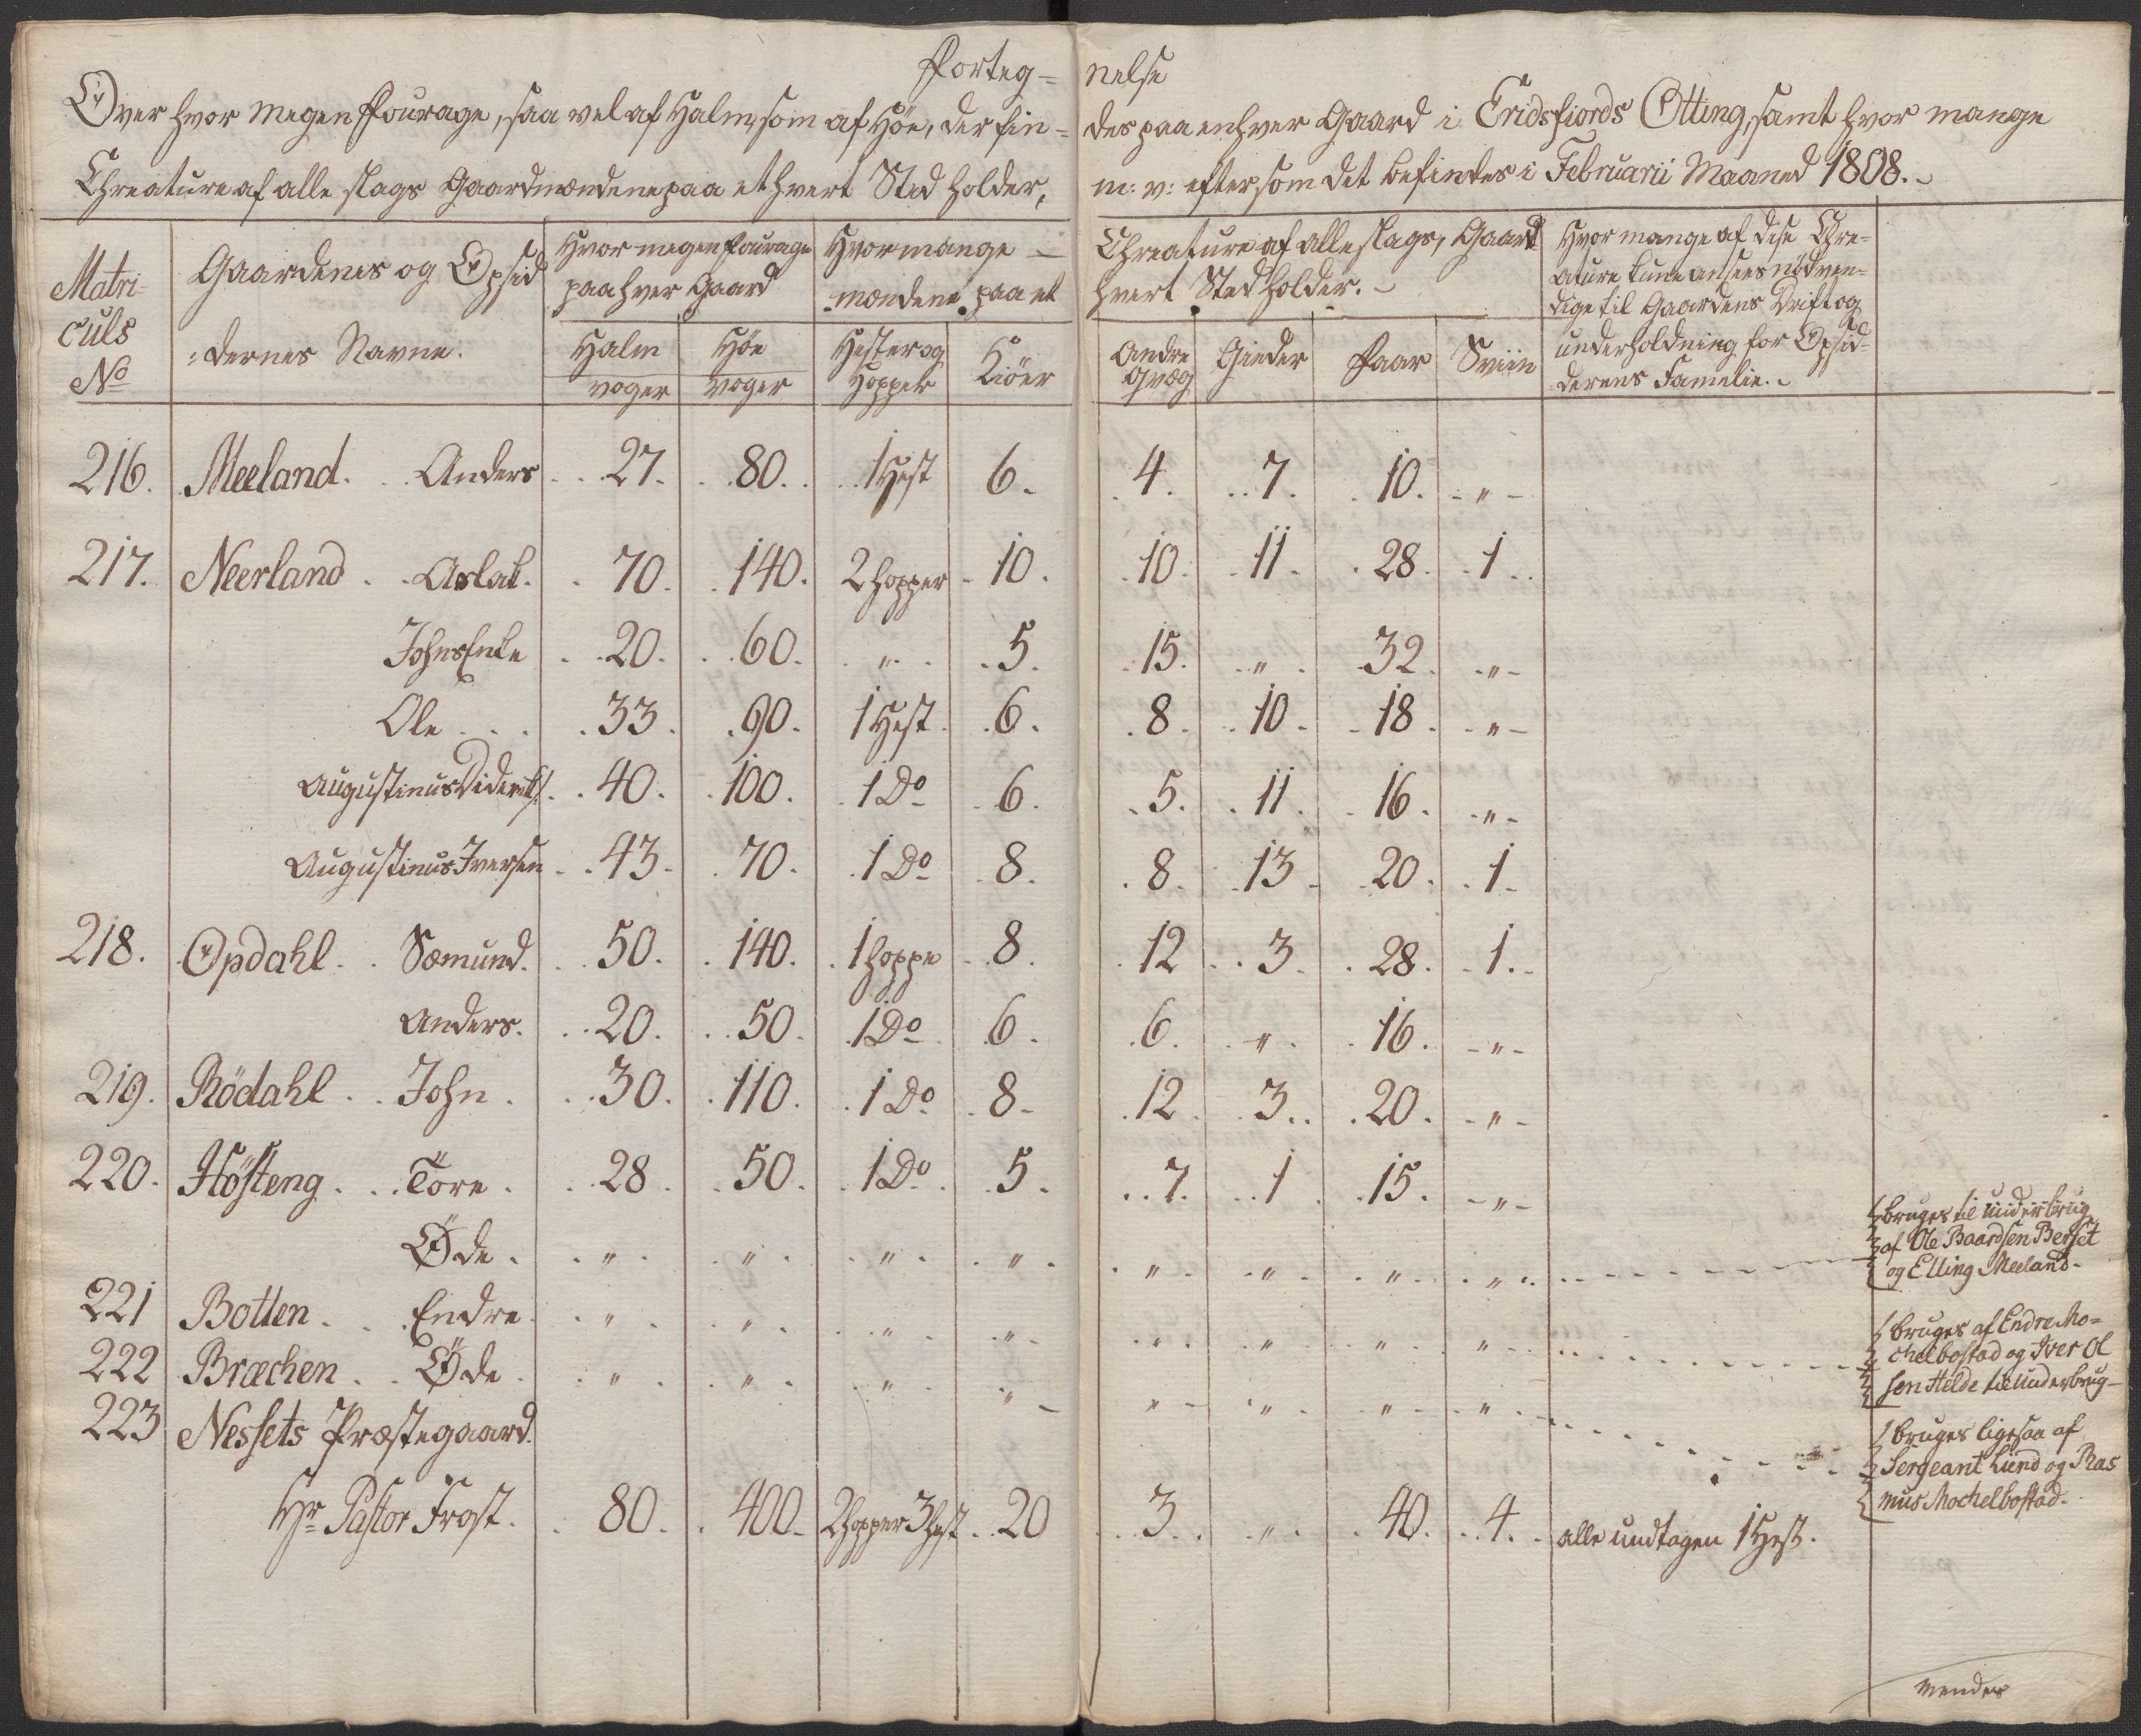 Forteg= nelse
Over hvor megen Fourage, saa vel af Halm, som af Höe, der fin= des paa enhver Gaard i Eridsfiords Otting, samt hvor mange
Chreature af alle slags Gaardmændene paa ethvert Sted holder, m: v: eftersom det befindes i Februarii Maaned 1808.
Matri=
culs
No
Gaardenes og Opsid
=dernes Navne.
Hvor megen Fourage
paa hver Gaard
Halm
voger
Höe
voger
Hvor mange Chreature af alle slags, Gaard
mændene paa et hvert Sted holder.
Hester og
Hopper
Kiöer
Andre
Qvæg
Gieder
Faar
Sviin
Hvor mange af dise Chre=
ature kune ansees nödven=
dige til Gaardens Drift og
underholdning for Opsid=
derens Familie.
216. Meeland. Anders 27. 80. 1 Hest 6. 4. 7. 10. "
217. Neerland Aslak. 70. 140. 2 hopper 10. 10. 11. 28. 1.
Johns Enke 20. 60. " 5. 15. " 32. "
Ole 33. 90. 1 Hest. 6. 8. 10. 18. "
Augustinus Diderik/: 40. 100. 1 Do 6. 5. 11. 16. "
Augustinus Iversen 43. 70. 1 Do 8. 8. 13. 20. 1.
218. Opdahl. Sæmund. 50. 140. 1 hoppe 8. 12 3. 28. 1.
Anders. 20. 50. 1 Do 6. 6. " 16. "
219. Rödahl John. 30. 110. 1 Do 8. 12. 3. 20. "
220. Hösteng Töre. 28. 50. 1 Do 5. 7. 1 15. "
Öde. " " " " " " " "
bruges til underbrug
af Ole Baardsen Berset
og Elling Meeland.
221 Botten. Endre " " " " " " " "
bruges af Endre Mo=
chelbostad og Iver Ol
sen Helde til Underbrug
222 Bræchen Öde " " " " " " " "
bruges ligesaa af
Sergeant Lund og Ras
mus Mochelbostad.
223 Nessets Præstegaard.
Hr Pastor Frost. 80. 400. 2 hopper 3 hest 20 3. " 40. 4. alle undtagen 1 Hest.
vendes